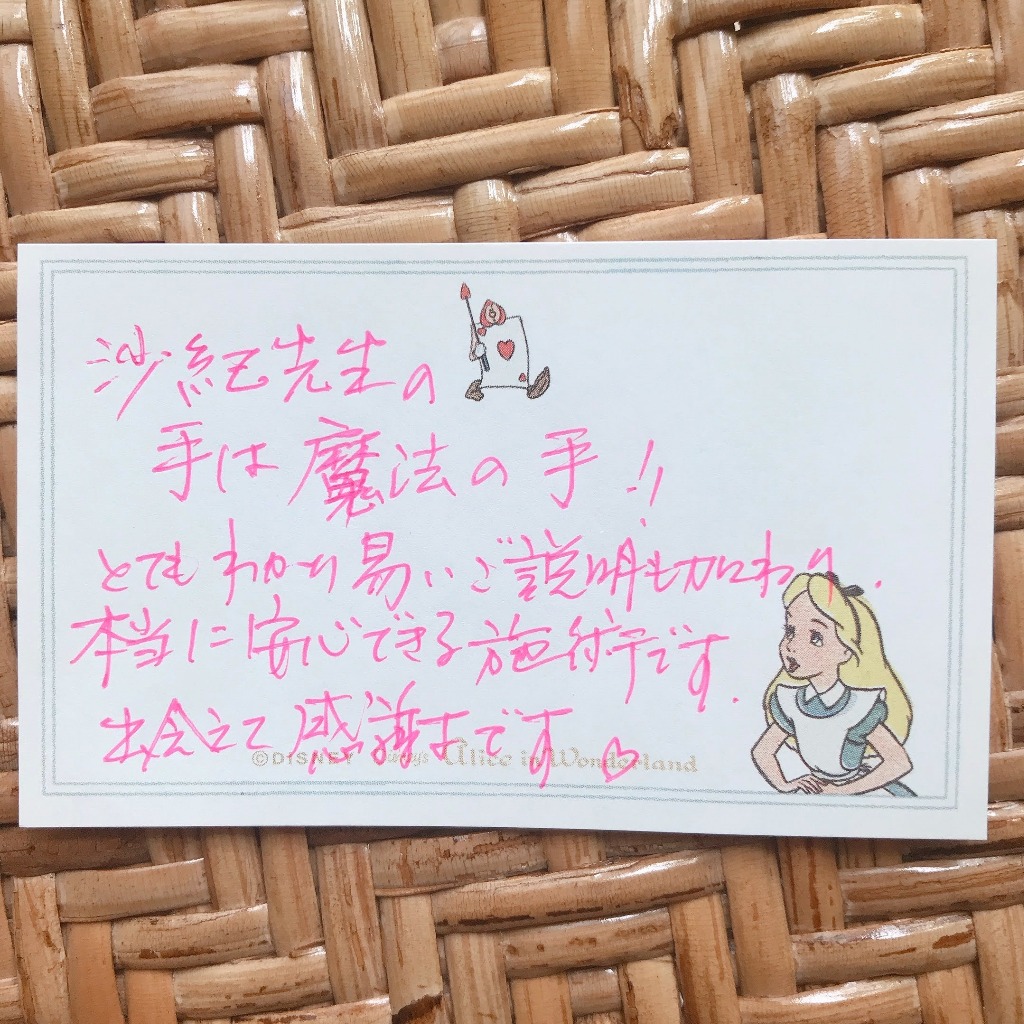 沙紀先生の
手は魔法の手!!
とてもわかり易いご説明も加わり.
本当に安心できる施術です.
出会えて感謝です♡
©DISNEY Alice in Wonderland